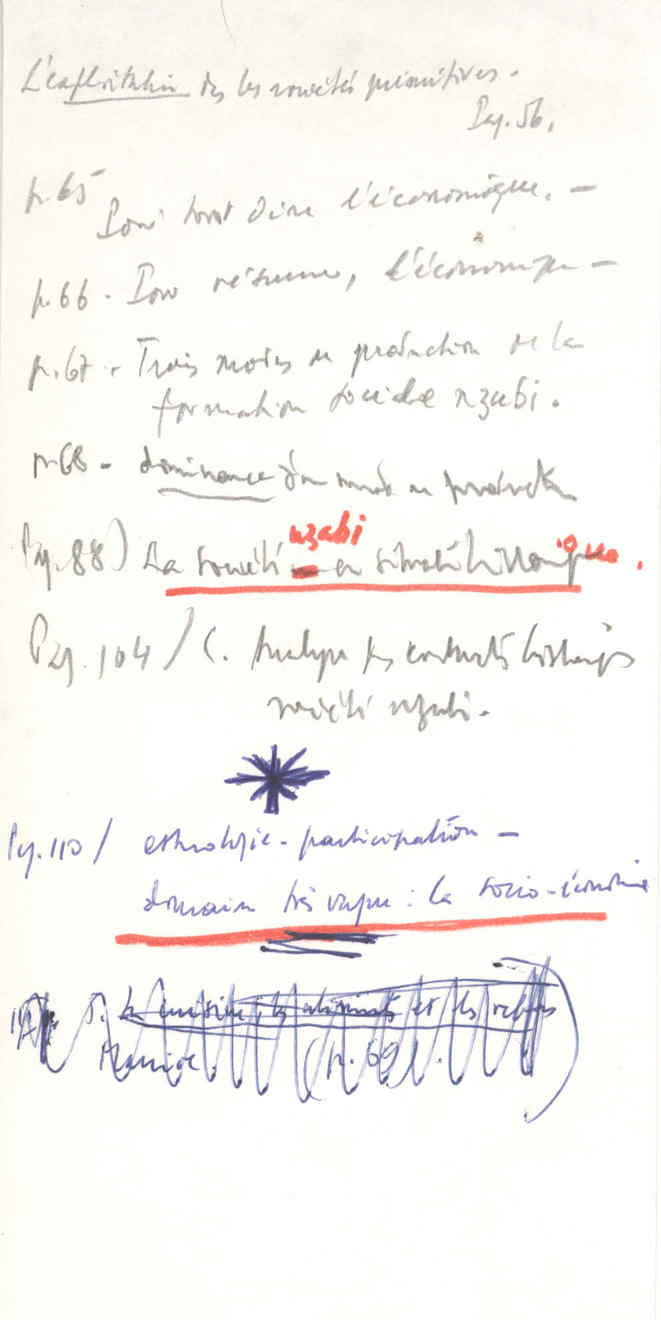 L'exploitation ds les sociétés primitives.
Pag. 56.
p. 65
Pour tout dire l'économique. —
p. 66 - Pour résumer, l'économique —
p. 67 - Trois modes de production de la
formation sociale nzabi.
p. 68 - dominance d'un mode de production
nzabi
Pag. 88) La société en situation historique.
Pag. 104 / C. Analyse des contacts historiques
société nzabi.
Pag. 110 / ethnologie - participation —
domaine très vague : la socio-économie
5. la cuisine, les aliments et les
(p. 69).